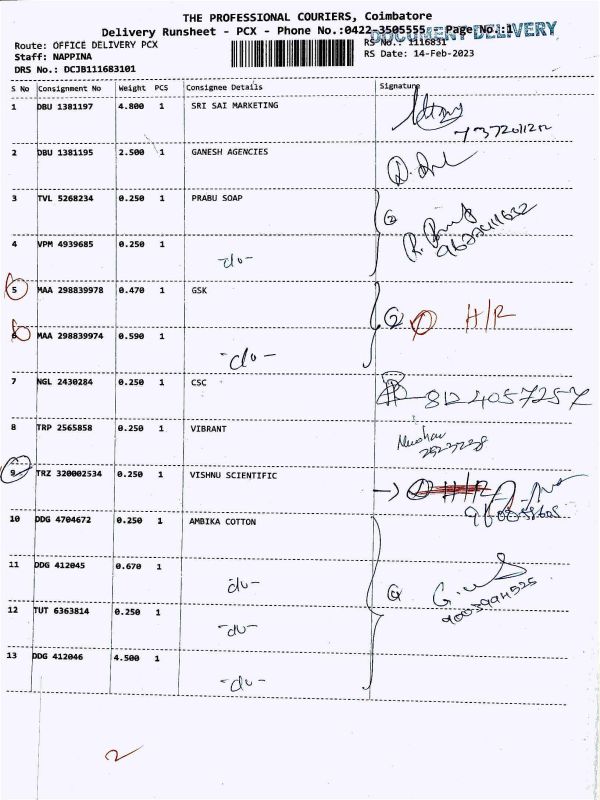 THE PROFESSIONAL COURIERS, Coimbatore
Delivery Runsheet - PCX - Phone No.:0422-3505555 Page No.:1
DOCUMENT DELIVERY
Route: OFFICE DELIVERY PCX RS No.: 1116831
Staff: NAPPINA RS Date: 14-Feb-2023
DRS No.: DCJB111683101
S No Consignment No Weight PCS Consignee Details Signature
1 DBU 1381197 4.800 1 SRI SAI MARKETING
2 DBU 1381195 2.500 1 GANESH AGENCIES
3 TVL 5268234 0.250 1 PRABU SOAP
4 VPM 4939685 0.250 1 -do-
5 MAA 298839978 0.470 1 GSK
② H/R
6 MAA 298839974 0.590 1 -do-
7 NGL 2430284 0.250 1 CSC 8124057257
8 TRP 2565858 0.250 1 VIBRANT
9 TRZ 320002534 0.250 1 VISHNU SCIENTIFIC
10 DDG 4704672 0.250 1 AMBIKA COTTON
11 DDG 412045 0.670 1 -do-
12 TUT 6363814 0.250 1 -do-
13 DDG 412046 4.500 1 -do-
2